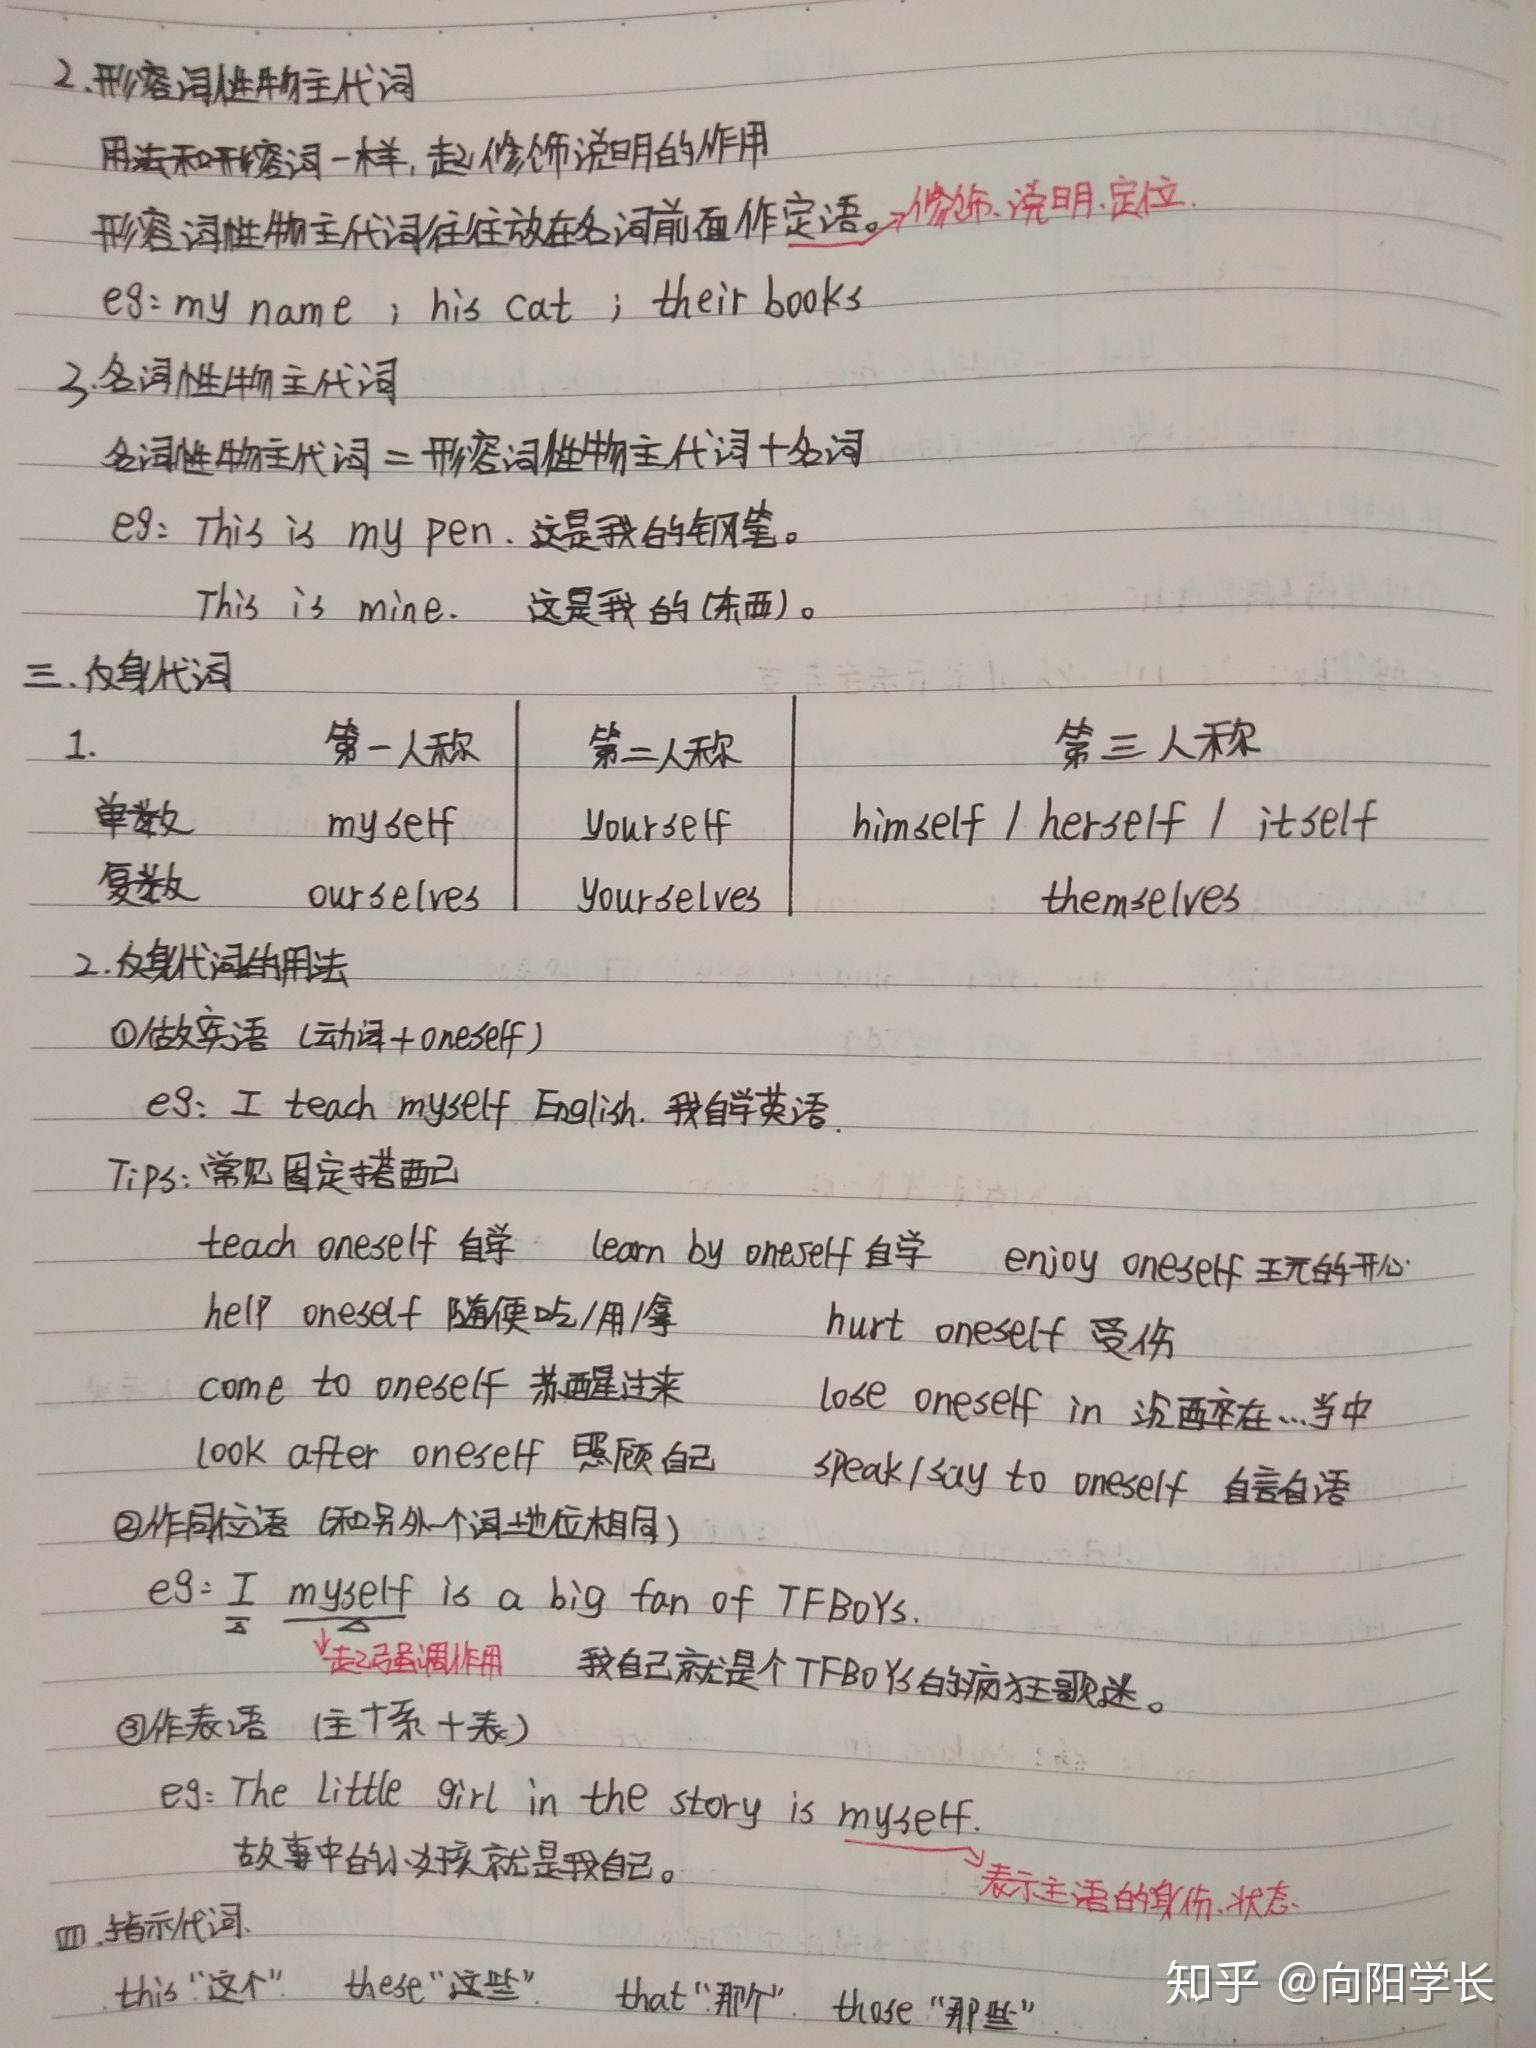 2.形容词性物主代词
用法和形容词一样,起修饰说明的作用
形容词性物主代词往往放在名词前面作定语。→修饰、说明、定位.
eg: my name ; his cat ; their books
3.名词性物主代词
名词性物主代词=形容词性物主代词+名词
eg: This is my pen. 这是我的钢笔。
This is mine. 这是我的(东西)。
三.反身代词
1. 第一人称 第二人称 第三人称
单数 myself yourself himself / herself / itself
复数 ourselves yourselves themselves
2.反身代词的用法
①做宾语 (动词+oneself)
eg: I teach myself English. 我自学英语.
Tips: 常见固定搭配
teach oneself 自学 learn by oneself 自学 enjoy oneself 玩的开心
help oneself 随便吃/用/拿 hurt oneself 受伤
come to oneself 苏醒过来 lose oneself in 沉醉在...当中
look after oneself 照顾自己 speak/say to oneself 自言自语
②作同位语 (和另外一个词地位相同)
eg: I myself is a big fan of TFBOYs.
↓起强调作用 我自己就是个TFBOYs的疯狂歌迷。
③作表语 (主+系+表)
eg: The little girl in the story is myself.
故事中的小女孩就是我自己。
表示主语的身份、状态.
四.指示代词.
this "这个" these "这些" that "那个". those "那些"
知乎 @向阳学长